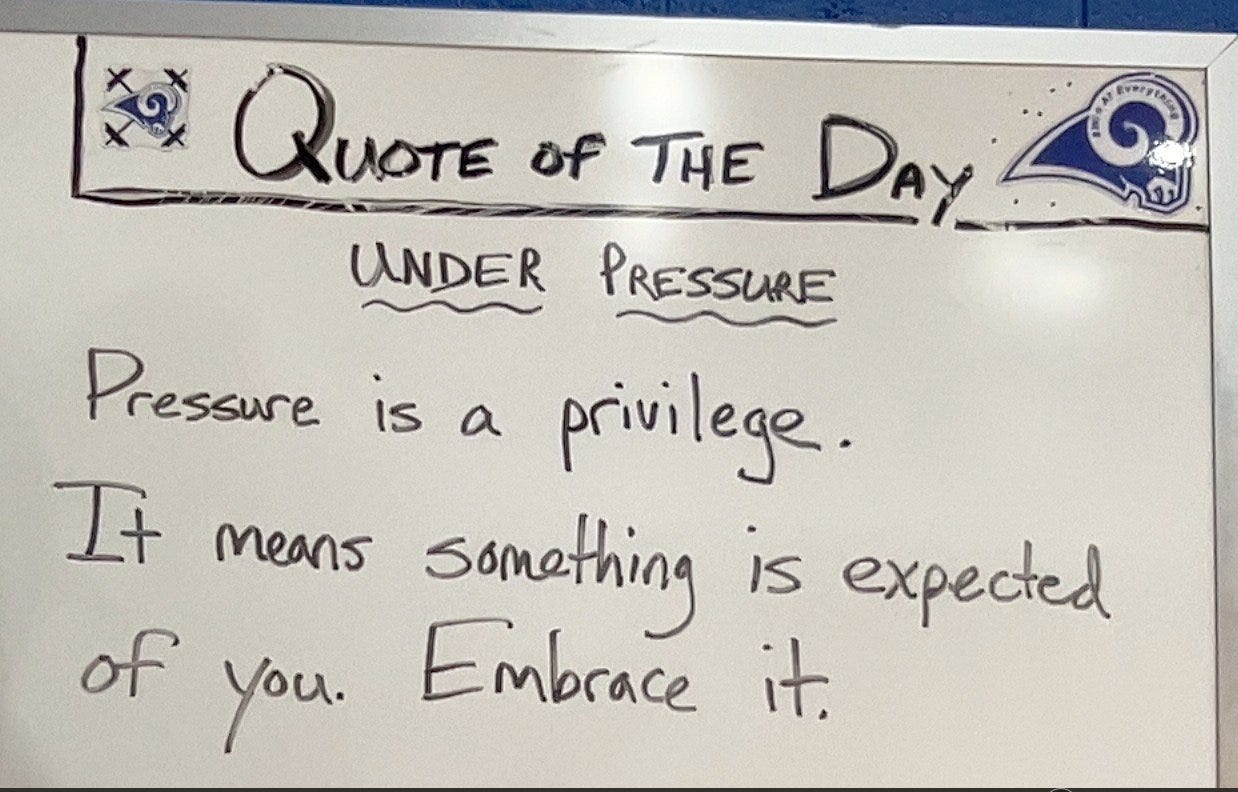 QUOTE OF THE DAY
UNDER PRESSURE
Pressure is a privilege.
It means something is expected
of you. Embrace it.